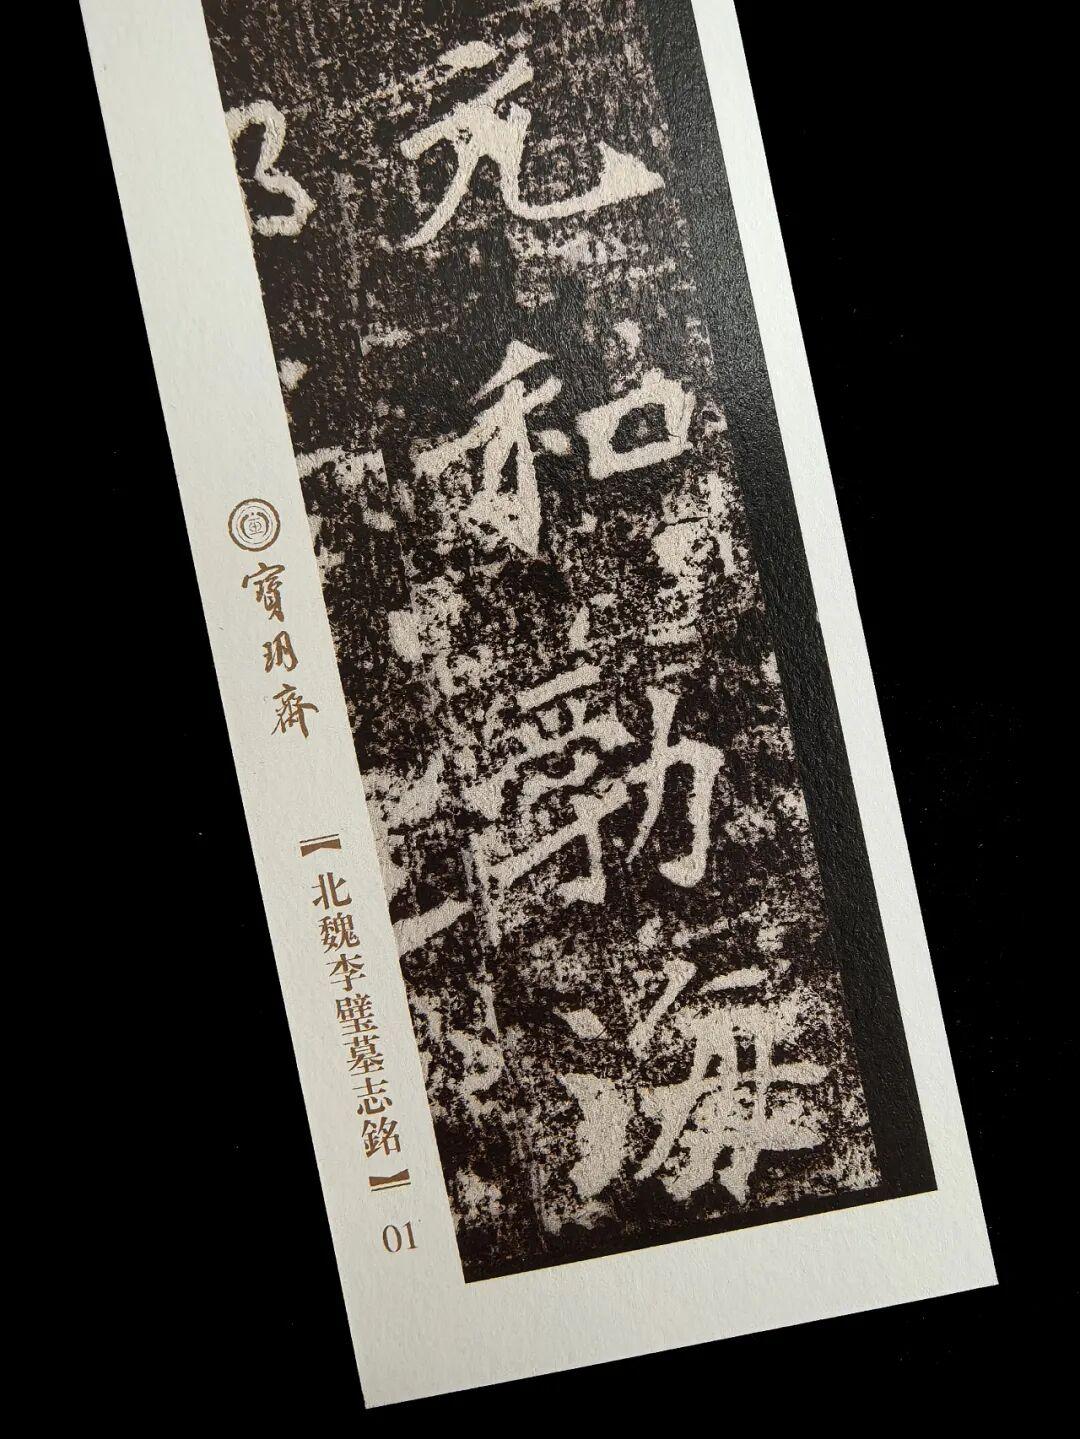 元和勃海
寶玥齋
【北魏李璧墓志銘】
01